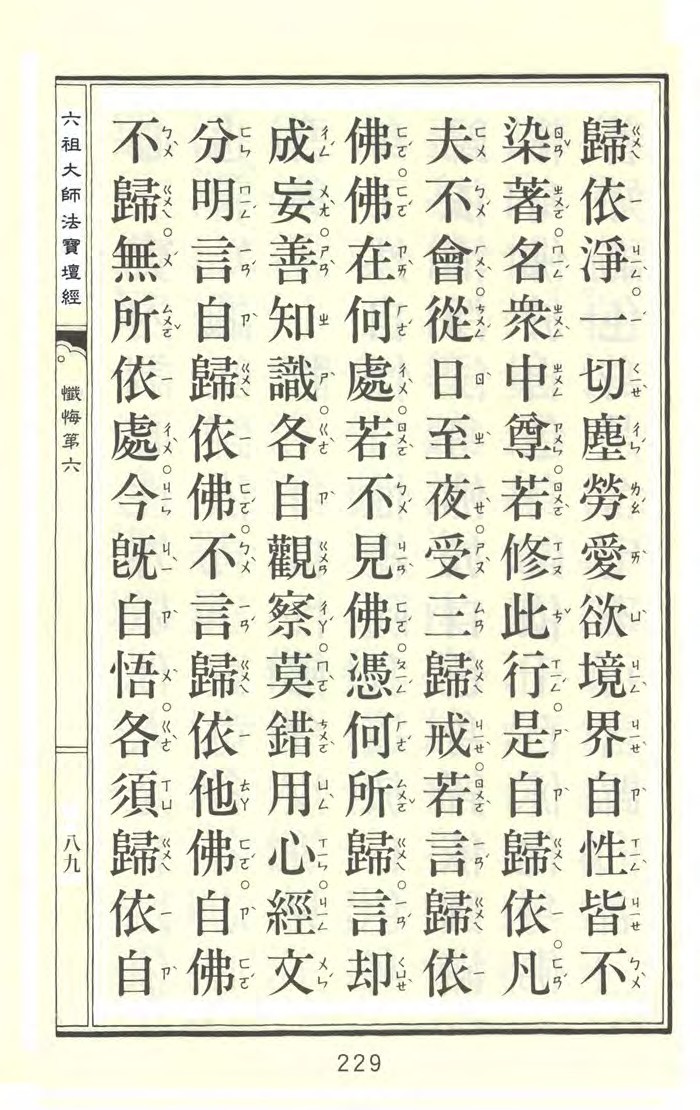 歸依淨。一切塵勞愛欲境界自性皆不
染著。名衆中尊。若修此行。是自歸依。凡
夫不會。從日至夜。受三歸戒。若言歸依
佛。佛在何處。若不見佛。憑何所歸。言却
成妄。善知識。各自觀察。莫錯用心。經文
分明言自歸依佛。不言歸依他佛。自佛
不歸。無所依處。今既自悟。各須歸依自
六祖大師法寶壇經
懺悔第六
八九
229